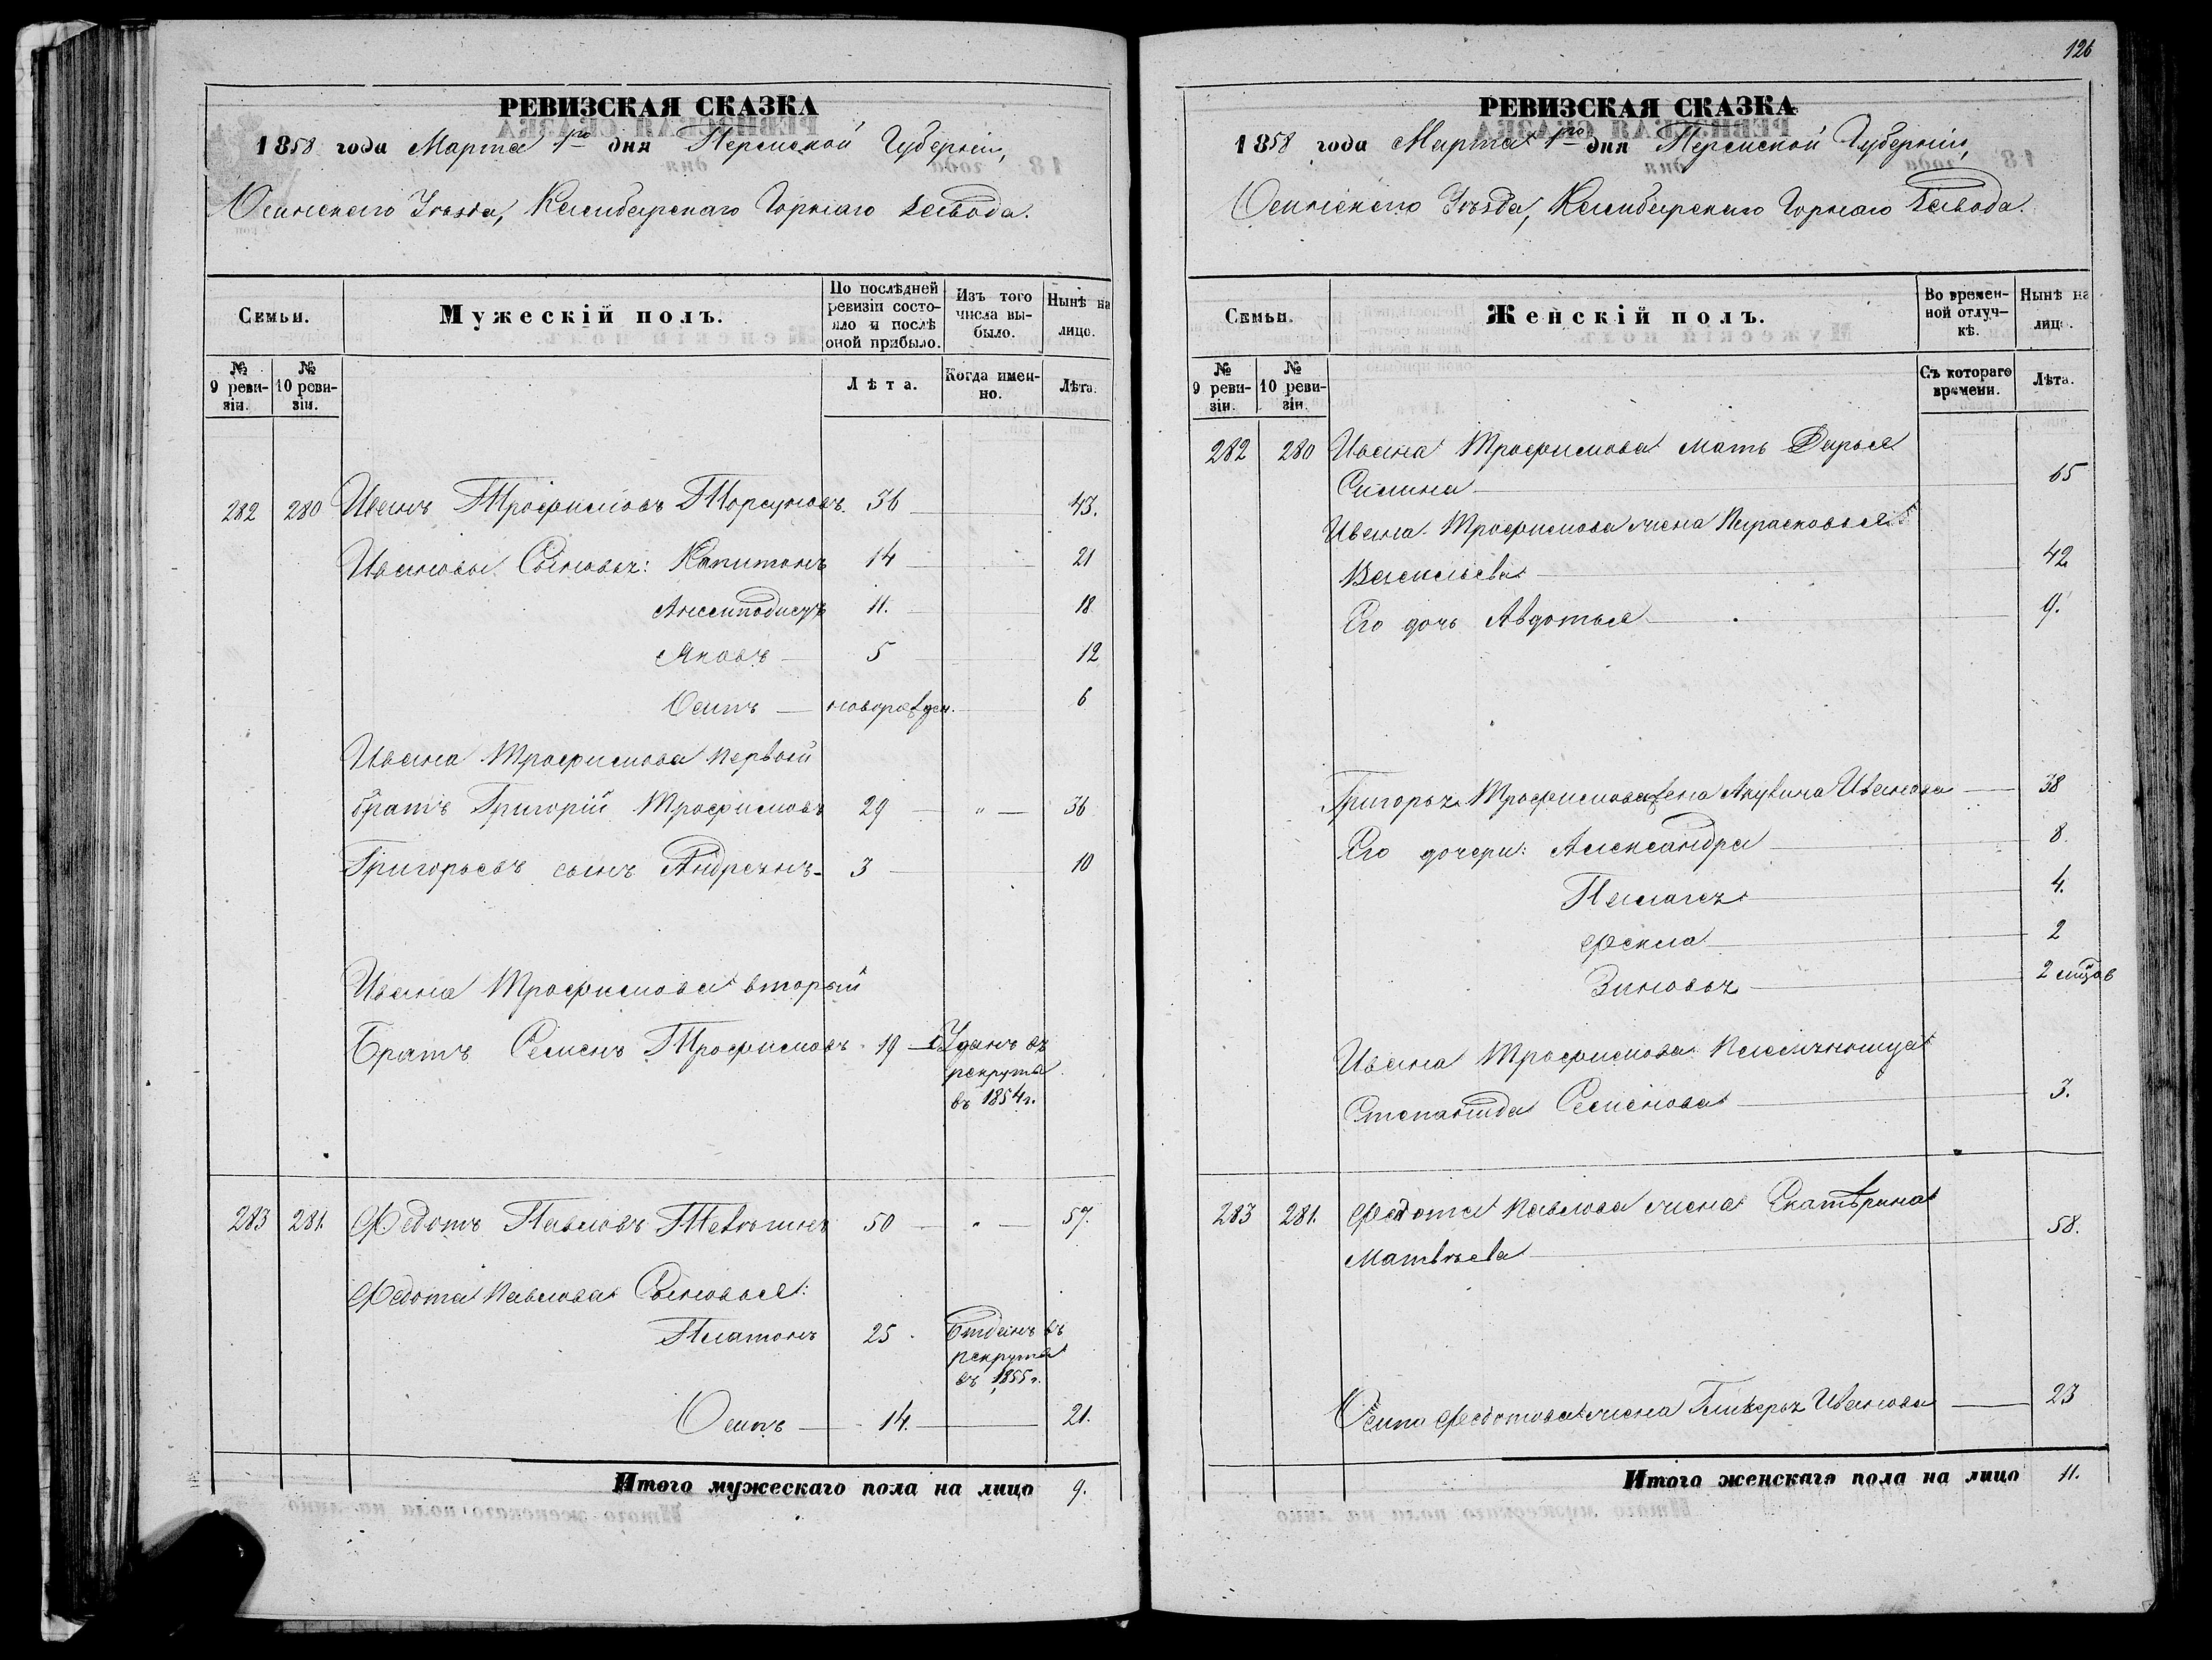 РЕВИЗСКАЯ СКАЗКА
1858 года Марта 1го дня Пермской Губерніи,
Осинскаго Уѣзда, Камбарскаго Горнаго Завода.
Семьи.
Мужескій полъ.
По послѣдней ревизіи состояло и послѣ оной прибыло.
Изъ того числа выбыло.
Нынѣ на лицо.
№ 9 ревизіи.
№ 10 ревизіи.
Лѣта.
Когда именно.
Лѣта.
282 280 Иванъ Трофимовъ 36 43.
Ивановы Сыновья: Капитонъ 14 21
Анемподистъ 11. 18
Яковъ 5 12
Осипъ новорожден. 6
Ивана Трофимова первой
братъ Григорій Трофимовъ 29 " 36
Григорьевъ сынъ Андреянъ 3 10
Ивана Трофимова вторый
Братъ Семенъ Трофимовъ 19 Отданъ въ
рекруты
въ 1854 г.
283 281. Федотъ Павловъ 50 " 57.
Федота Павлова Сыновья:
Платонъ 25 Отданъ въ
рекруты
въ 1855 г.
Осипъ 14. 21.
Итого мужескаго пола на лицо 9.
126
РЕВИЗСКАЯ СКАЗКА
1858 года Марта 1го дня Пермской Губерніи,
Осинскаго Уѣзда, Камбарскаго Горнаго Завода.
Семьи.
Женскій полъ.
Во временной отлучкѣ.
Нынѣ на лицо.
№ 9 ревизіи.
№ 10 ревизіи.
Съ котораго времени.
Лѣта.
282 280 Ивана Трофимова мать Дарья
Силина 65
Ивана Трофимова жена Парасковья
Васильева 42
Его дочь Авдотья 9.
Григорья Трофимова жена Акулина Иванова 38
Его дочери: Александра 8
Пелагея 4.
Фекла 2
Зиновья 2 мѣсяцов
Ивана Трофимова племянница
Степанида Семенова 3.
283 281. Федота Павлова жена Екатерина
Матвѣева 58.
Осипа Федотова жена Гликерья Иванова 23
Итого женскаго пола на лицо 11.